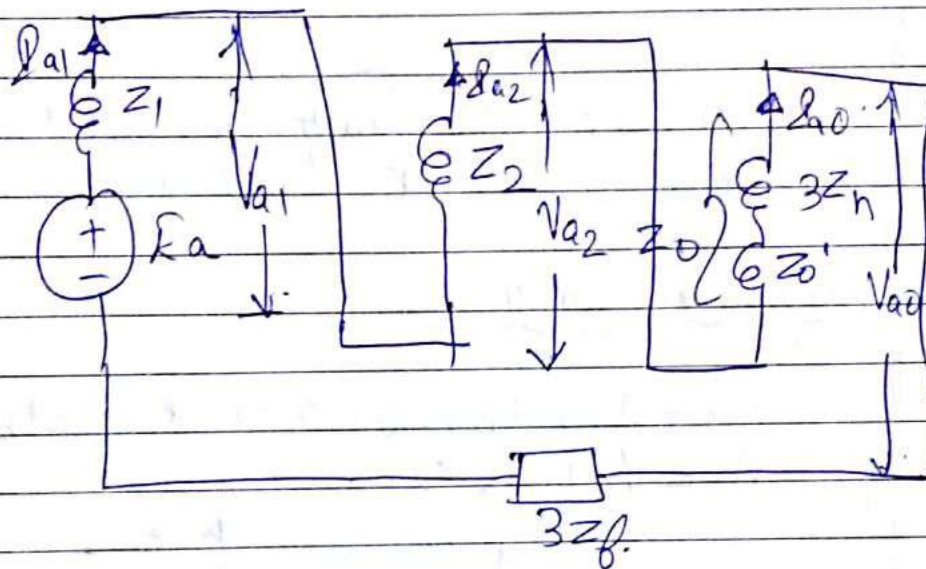 Ia1
Z1
Va1
+
-
Ea
Ia2
Z2
Va2
Ia0
3Zn
Z0
Z0'
Va0
3Zf.